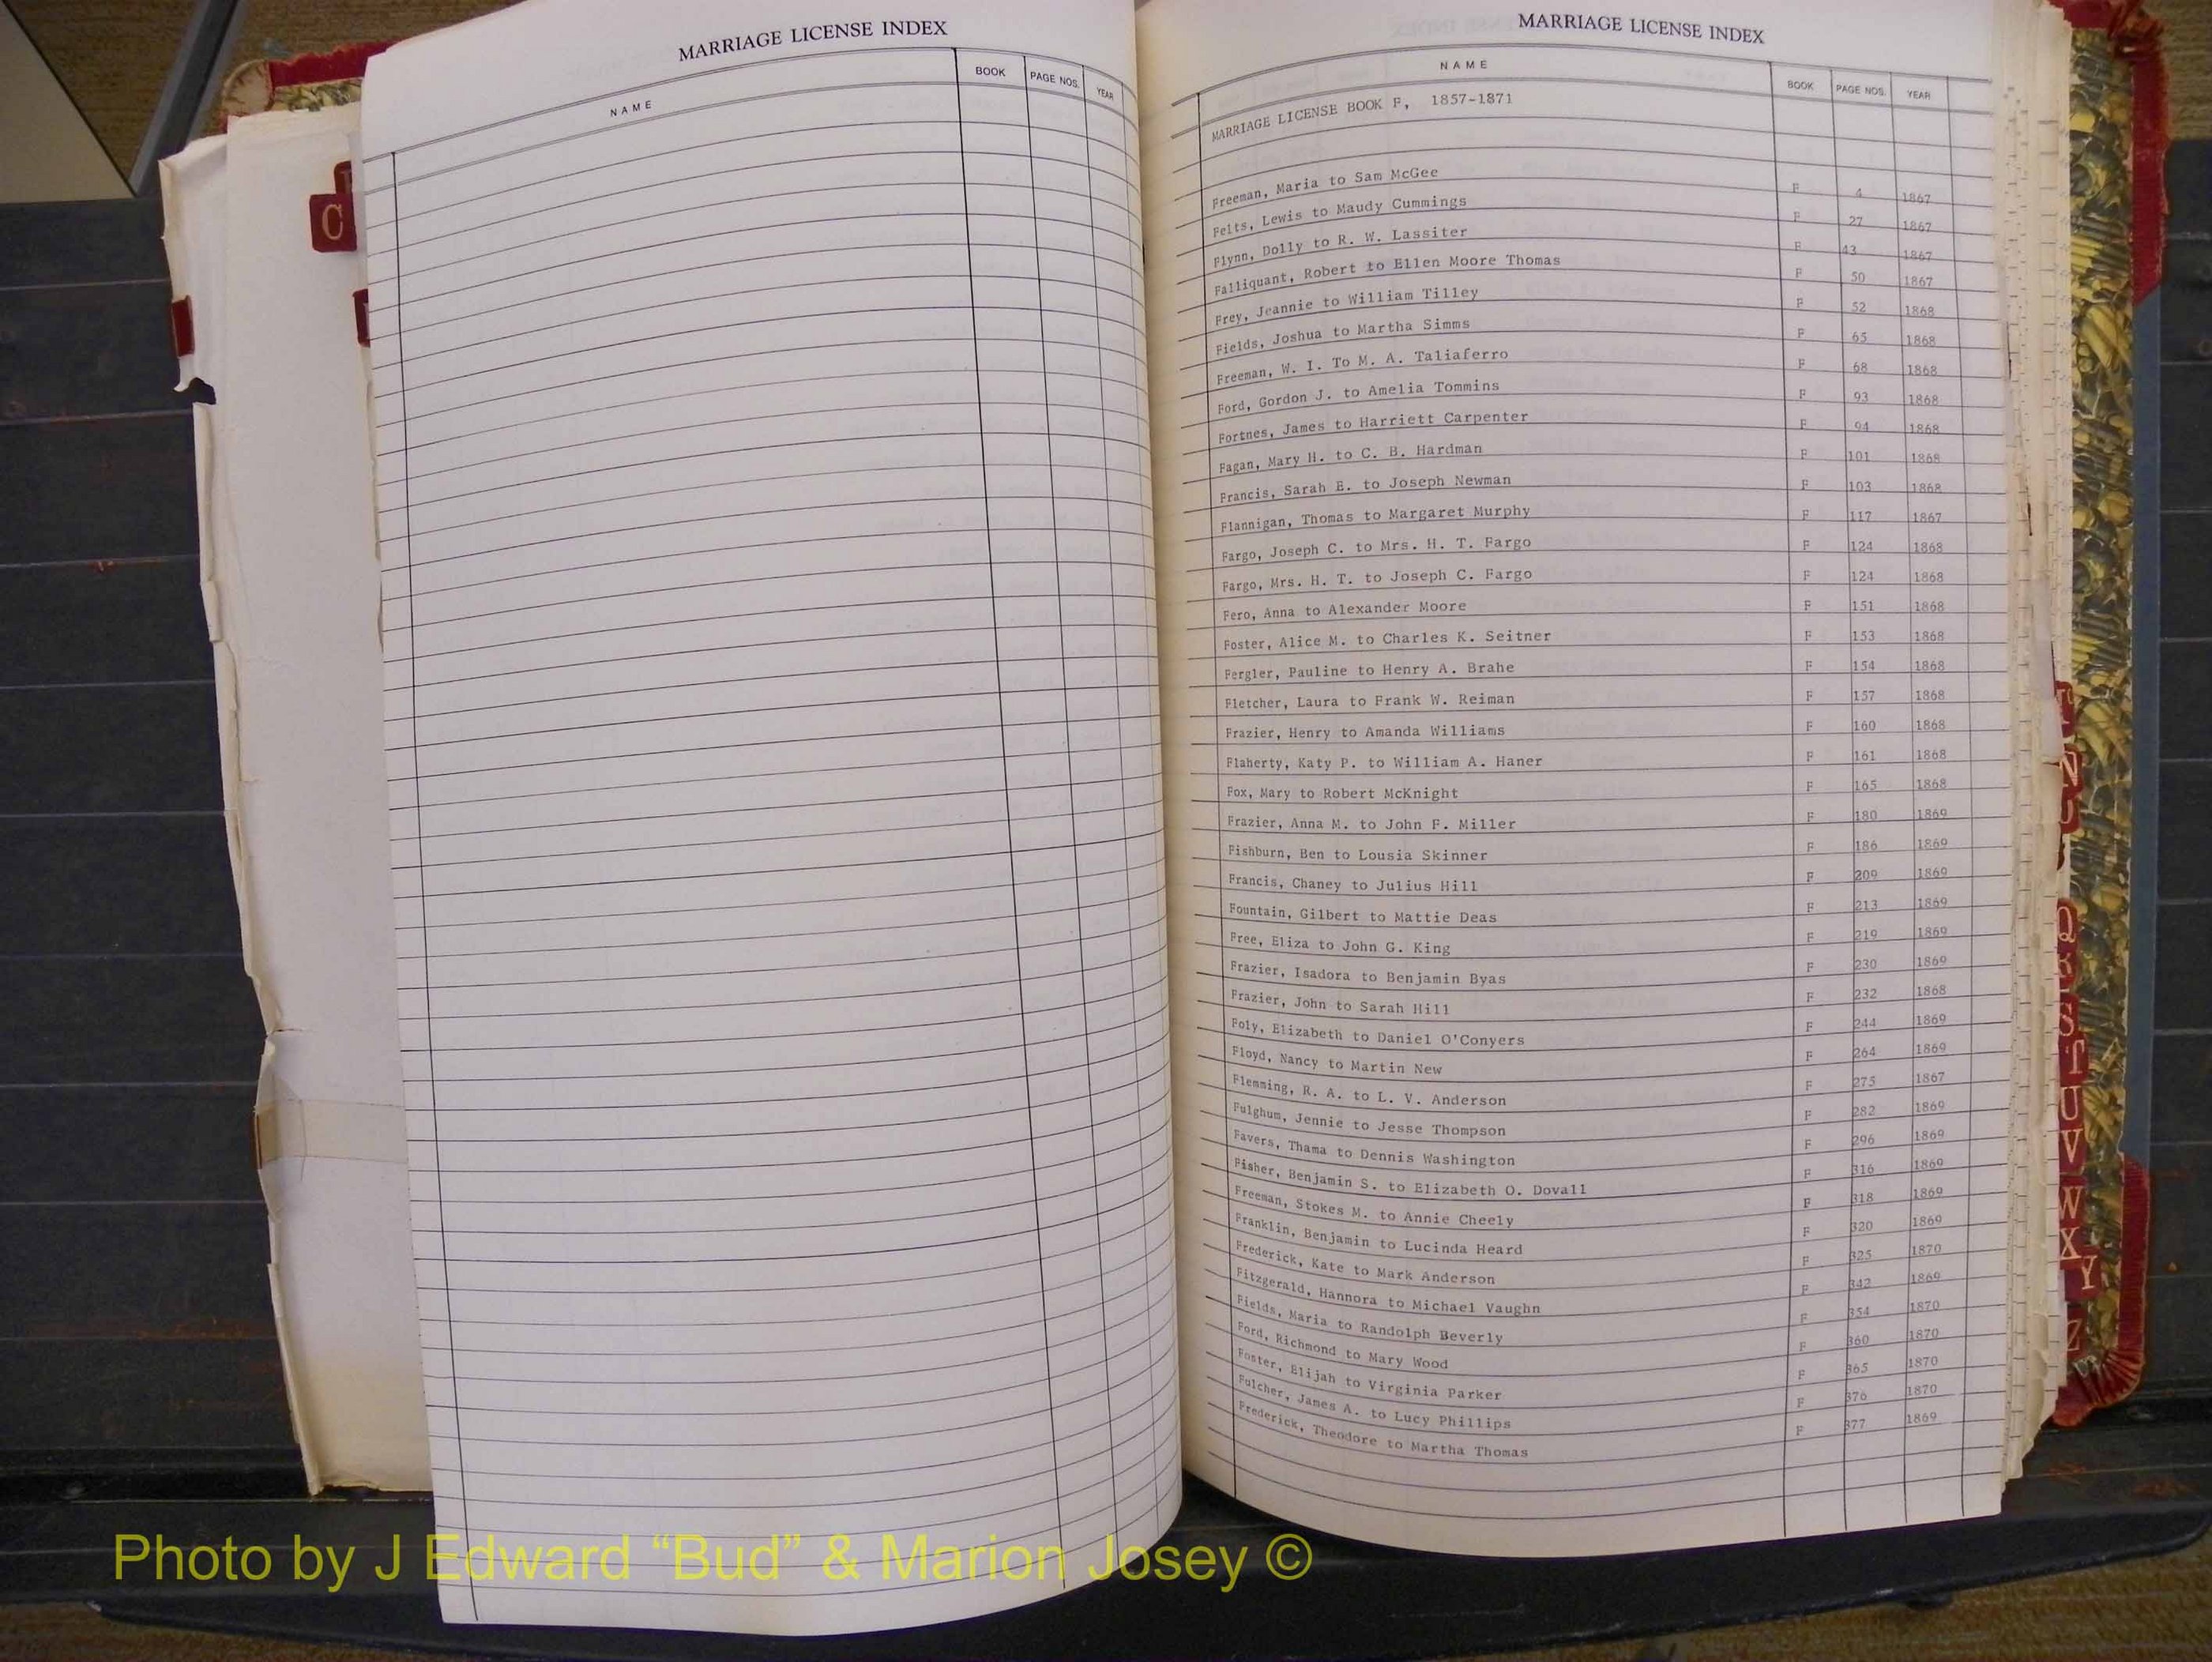 MARRIAGE LICENSE INDEX
NAME BOOK PAGE NOS. YEAR
C
MARRIAGE LICENSE INDEX
NAME BOOK PAGE NOS. YEAR
MARRIAGE LICENSE BOOK F, 1857-1871
Freeman, Maria to Sam McGee F 4 1867
Felts, Lewis to Maudy Cummings F 27 1867
Flynn, Dolly to R. W. Lassiter F 43 1867
Falliquant, Robert to Ellen Moore Thomas F 50 1867
Frey, Jeannie to William Tilley F 52 1868
Fields, Joshua to Martha Simms F 65 1868
Freeman, W. I. To M. A. Taliaferro F 68 1868
Ford, Gordon J. to Amelia Tommins F 93 1868
Fortnes, James to Harriett Carpenter F 94 1868
Fagan, Mary H. to C. B. Hardman F 101 1868
Francis, Sarah E. to Joseph Newman F 103 1868
Flannigan, Thomas to Margaret Murphy F 117 1867
Fargo, Joseph C. to Mrs. H. T. Fargo F 124 1868
Fargo, Mrs. H. T. to Joseph C. Fargo F 124 1868
Fero, Anna to Alexander Moore F 151 1868
Foster, Alice M. to Charles K. Seitner F 153 1868
Fergler, Pauline to Henry A. Brahe F 154 1868
Fletcher, Laura to Frank W. Reiman F 157 1868
Frazier, Henry to Amanda Williams F 160 1868
Flaherty, Katy P. to William A. Haner F 161 1868
Fox, Mary to Robert McKnight F 165 1868
Frazier, Anna M. to John F. Miller F 180 1869
Fishburn, Ben to Lousia Skinner F 186 1869
Francis, Chaney to Julius Hill F 209 1869
Fountain, Gilbert to Mattie Deas F 213 1869
Free, Eliza to John G. King F 219 1869
Frazier, Isadora to Benjamin Byas F 230 1869
Frazier, John to Sarah Hill F 232 1868
Foly, Elizabeth to Daniel O'Conyers F 244 1869
Floyd, Nancy to Martin New F 264 1869
Flemming, R. A. to L. V. Anderson F 275 1867
Fulghum, Jennie to Jesse Thompson F 282 1869
Favers, Thama to Dennis Washington F 296 1869
Fisher, Benjamin S. to Elizabeth O. Dovall F 316 1869
Freeman, Stokes M. to Annie Cheely F 318 1869
Franklin, Benjamin to Lucinda Heard F 320 1869
Frederick, Kate to Mark Anderson F 325 1870
Fitzgerald, Hannora to Michael Vaughn F 342 1869
Fields, Maria to Randolph Beverly F 354 1870
Ford, Richmond to Mary Wood F 360 1870
Foster, Elijah to Virginia Parker F 365 1870
Fulcher, James A. to Lucy Phillips F 376 1870
Frederick, Theodore to Martha Thomas F 377 1869
Q
R
S
T
U
V
W
X
Y
Z
Photo by J Edward “Bud” & Marion Josey ©